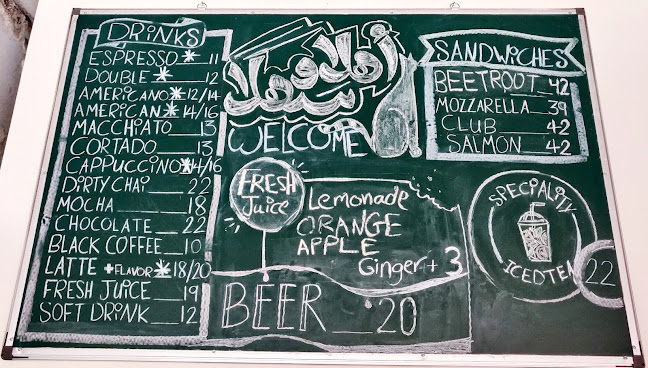 DRINKS
ESPRESSO * 11
DOUBLE * 12
AMERICANO * 12/14
AMERICAN * 14/16
MACCHIATO 13
CORTADO 13
CAPPUCCINO * 14/16
DIRTY CHAI 22
MOCHA 18
CHOCOLATE 22
BLACK COFFEE 10
LATTE +FLAVOR * 18/20
FRESH JUICE 19
SOFT DRINK 12
أهلا و
سهلا
WELCOME
FRESH
JUICE
Lemonade
ORANGE
APPLE
Ginger + 3
BEER 20
SANDWICHES
BEETROOT 42
MOZZARELLA 39
CLUB 42
SALMON 42
SPECIALITY
ICED TEA
22